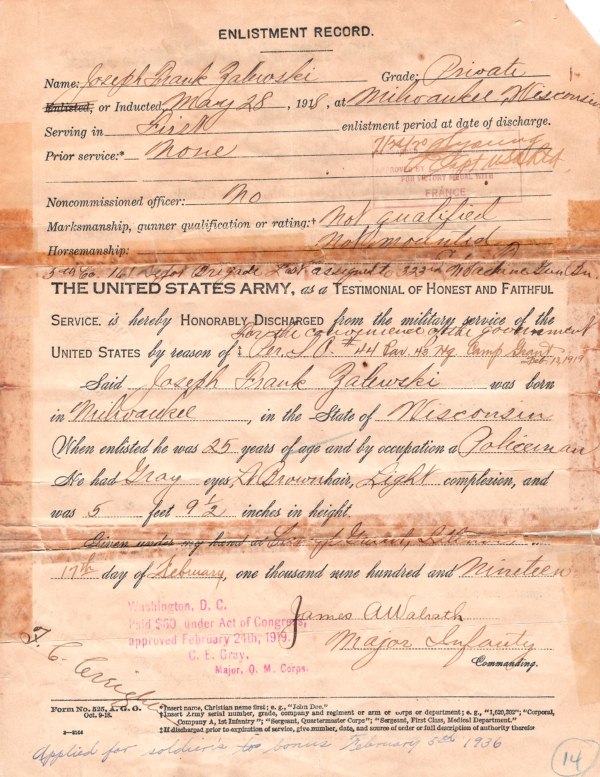 ENLISTMENT RECORD.
Name: Joseph Frank Zalewski Grade: Private
Enlisted, or Inducted May 28, 1918, at Milwaukee, Wisconsin
Serving in First enlistment period at date of discharge.
Prior service:* None
FOR VICTORY MEDAL WITH
FRANCE
Noncommissioned officer: No
Marksmanship, gunner qualification or rating:† Not qualified
Horsemanship: Not mounted
5th Co. 161 Depot Brigade Last assigned to 333rd Machine Gun Bn.
THE UNITED STATES ARMY, as a TESTIMONIAL OF HONEST AND FAITHFUL
SERVICE, is hereby HONORABLY DISCHARGED from the military service of the
For the convenience of the Government
UNITED STATES by reason of ‡ Per S.O. #44 Par. 43 Hq. Camp Grant Feb. 13, 1919
Said Joseph Frank Zalewski was born
in Milwaukee, in the State of Wisconsin
When enlisted he was 25 years of age and by occupation a Policeman
He had Gray eyes, Lt Brown hair, Light complexion, and
was 5 feet 9 1/2 inches in height.
Given under my hand at this
17th day of February, one thousand nine hundred and Nineteen
Washington, D. C.
Paid $60 under Act of Congress
approved February 24th, 1919.
C. E. Gray.
Major, Q. M. Corps.
James A Walrath
Major Infantry
Commanding.
Form No. 525, A. G. O.
Oct. 9-18.
*Insert name, Christian name first; e. g., "John Doe."
†Insert Army serial number, grade, company and regiment or arm or corps or department; e. g., "1,620,302"; "Corporal,
Company A, 1st Infantry"; "Sergeant, Quartermaster Corps"; "Sergeant, First Class, Medical Department."
‡If discharged prior to expiration of service, give number, date, and source of order or full description of authority therefor
Applied for soldier's bonus February 5th 1936
14